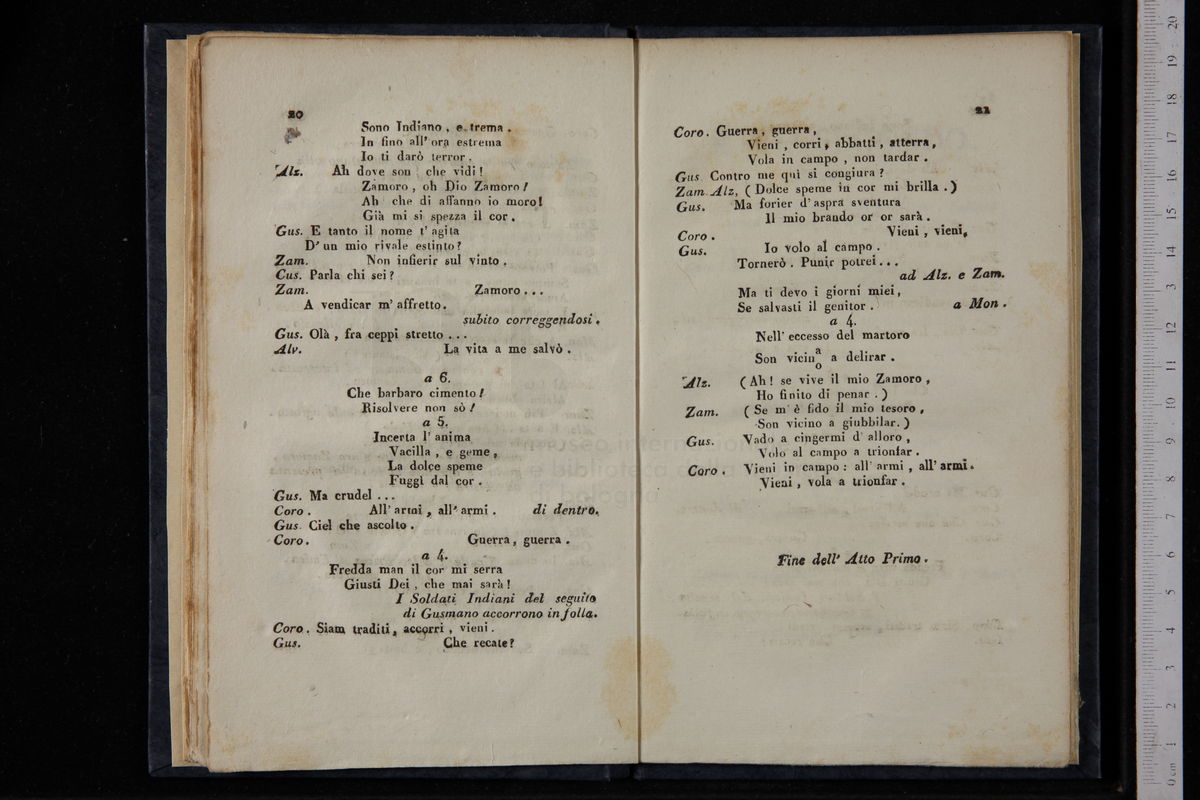 20
Sono Indiano , e trema .
In fino all' ora estrema
Io ti darò terror .
Alz. Ah dove son che vidi !
Zamoro , oh Dio Zamoro !
Ah che di affanno io moro !
Già mi si spezza il cor .
Gus. E tanto il nome t' agita
D' un mio rivale estinto ?
Zam. Non infierir sul vinto .
Cus. Parla chi sei ?
Zam. Zamoro . . .
A vendicar m' affretto .
subito correggendosi .
Gus. Olà , fra ceppi stretto . . .
Alv. La vita a me salvò .
a 6.
Che barbaro cimento !
Risolvere non sò !
a 5.
Incerta l' anima
Vacilla , e geme ,
La dolce speme
Fuggì dal cor .
Gus. Ma crudel . . .
Coro . All' armi , all' armi . di dentro .
Gus. Ciel che ascolto .
Coro . Guerra , guerra .
a 4.
Fredda man il cor mi serra
Giusti Dei , che mai sarà !
I Soldati Indiani del seguito
di Gusmano accorrono in folla .
Coro . Siam traditi , accorri , vieni .
Gus. Che recate ?
21
Coro . Guerra , guerra ,
Vieni , corri , abbatti , atterra ,
Vola in campo , non tardar .
Gus Contro me qui si congiura ?
Zam. Alz, ( Dolce speme in cor mi brilla . )
Gus. Ma forier d' aspra sventura
Il mio brando or or sarà .
Coro . Vieni , vieni ,
Gus. Io volo al campo .
Tornerò . Punir potrei . . .
ad Alz. e Zam.
Ma ti devo i giorni miei ,
Se salvasti il genitor . a Mon .
a 4.
Nell' eccesso del martoro
Son vicin a/o a delirar .
Alz. ( Ah ! se vive il mio Zamoro ,
Ho finito di penar . )
Zam. ( Se m' è fido il mio tesoro ,
Son vicino a giubbilar. )
Gus. Vado a cingermi d' alloro ,
Volo al campo a trionfar .
Coro . Vieni in campo : all' armi , all' armi .
Vieni , vola a trionfar .
Fine dell' Atto Primo .